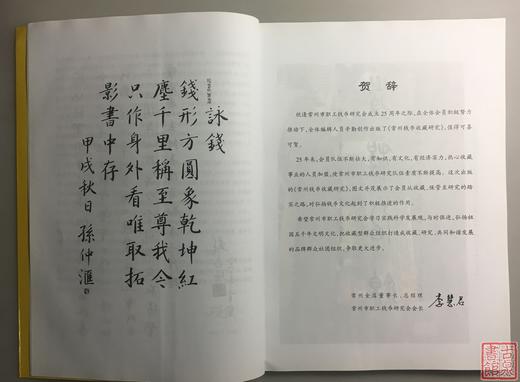 詠錢
錢形方圓象乾坤紅
塵千里稱至尊我今
只作身外看唯取拓
影書中存
甲戌秋日 孫仲滙
贺辞
欣逢常州市职工钱币研究会成立25周年之际，在全体会员积极努力
推动下，全体编辑人员辛勤创作出版了《常州钱币收藏研究》，值得可喜
可贺。
25年来，会员队伍不断壮大，有知识，有文化，有经济实力，热心收藏
事业的人员加盟，使常州市职工钱币研究队伍素质不断提高。这次出版
的《常州钱币收藏研究》，图文并茂展示了会员从收藏、保管至研究的踏
实之路，对弘扬钱币文化起到了积极推进的作用。
希望常州市职工钱币研究会学习实践科学发展观，与时俱进，弘扬祖
国五千年文明文化，把收藏型群众组织打造成收藏、研究、共同和谐发展
的品牌群众社团组织，争取更大进步。
常州金店董事长、总经理
常州市职工钱币研究会会长
李慧君
古泉
書館